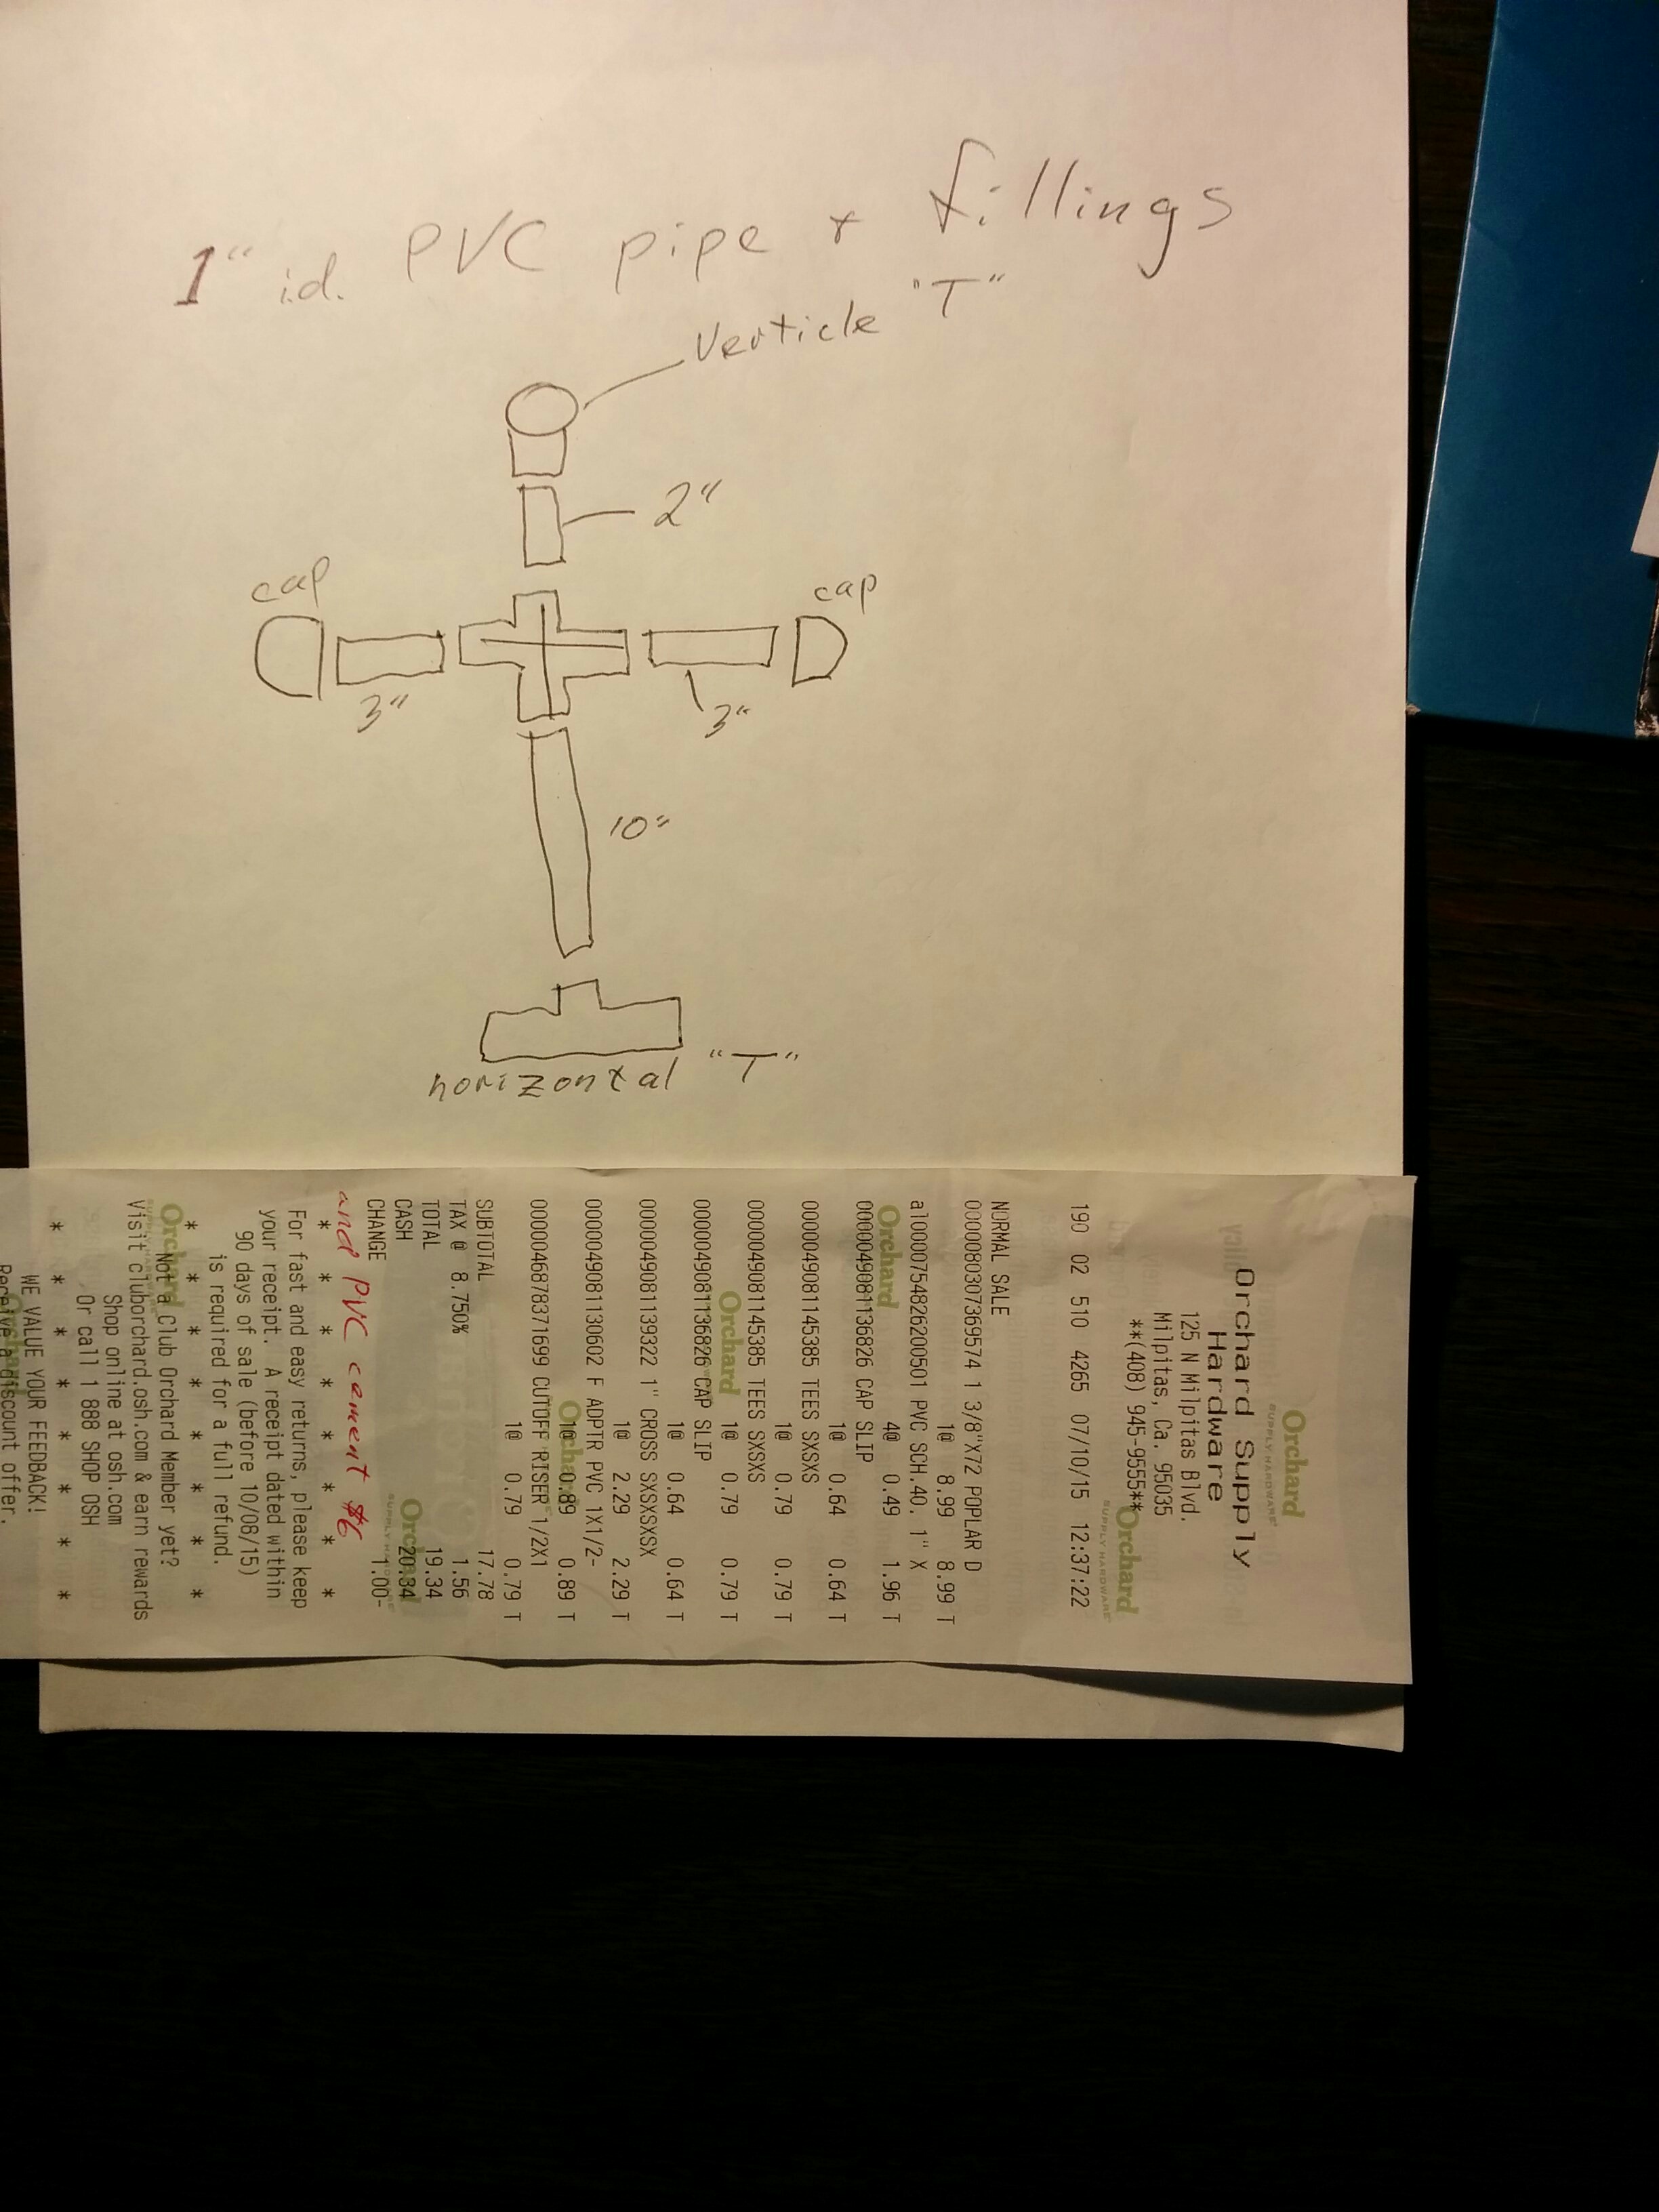 1" i.d. PVC pipe + fillings
Verticle "T"
2"
cap
cap
3"
3"
10"
horizontal "T"
Orchard
SUPPLY HARDWARE
Orchard Supply
Hardware
125 N Milpitas Blvd.
Milpitas, Ca. 95035
**(408) 945-9555**
190 02 510 4265 07/10/15 12:37:22
NORMAL SALE
0000080307369574 1 3/8"X72 POPLAR D
1@ 8.99 8.99 T
a100007548262200501 PVC SCH.40. 1" X
4@ 0.49 1.96 T
0000049081136826 CAP SLIP
1@ 0.64 0.64 T
0000049081145385 TEES SXSXS
1@ 0.79 0.79 T
0000049081145385 TEES SXSXS
1@ 0.79 0.79 T
0000049081136826 CAP SLIP
1@ 0.64 0.64 T
0000049081139322 1" CROSS SXSXSXSX
1@ 2.29 2.29 T
0000049081130602 F ADPTR PVC 1X1/2-
1@ 0.89 0.89 T
0000046878371699 CUTOFF RISER 1/2X1
1@ 0.79 0.79 T
SUBTOTAL 17.78
TAX @ 8.750% 1.56
TOTAL 19.34
CASH 20.34
CHANGE 1.00-
and PVC cement $6
* * * * * * * *
For fast and easy returns, please keep
your receipt. A receipt dated within
90 days of sale (before 10/08/15)
is required for a full refund.
* * * * * * * *
Not a Club Orchard Member yet?
Visit cluborchard.osh.com & earn rewards
Shop online at osh.com
Or call 1 888 SHOP OSH
* * * * * * * *
WE VALUE YOUR FEEDBACK!
Receive a discount offer.